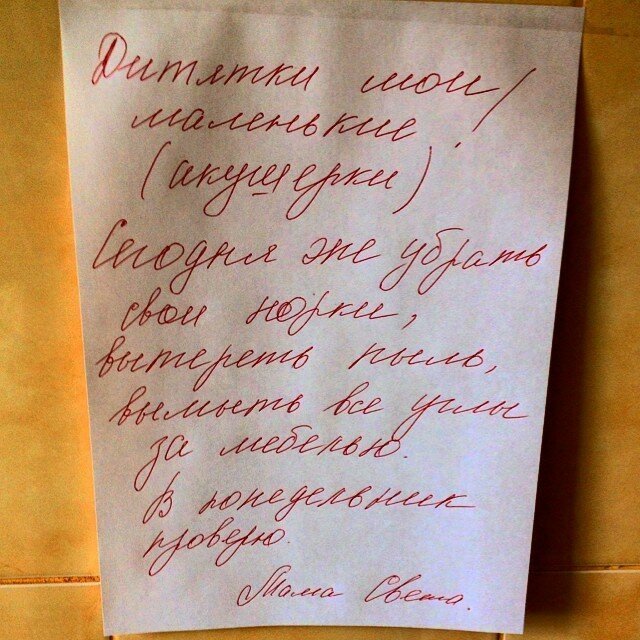 Дитятки мои
маленькие!
(акушерки)
Сегодня же убрать
свои норки,
вытереть пыль,
вымыть все углы
за мебелью.
В понедельник
проверю.
Мама Света.